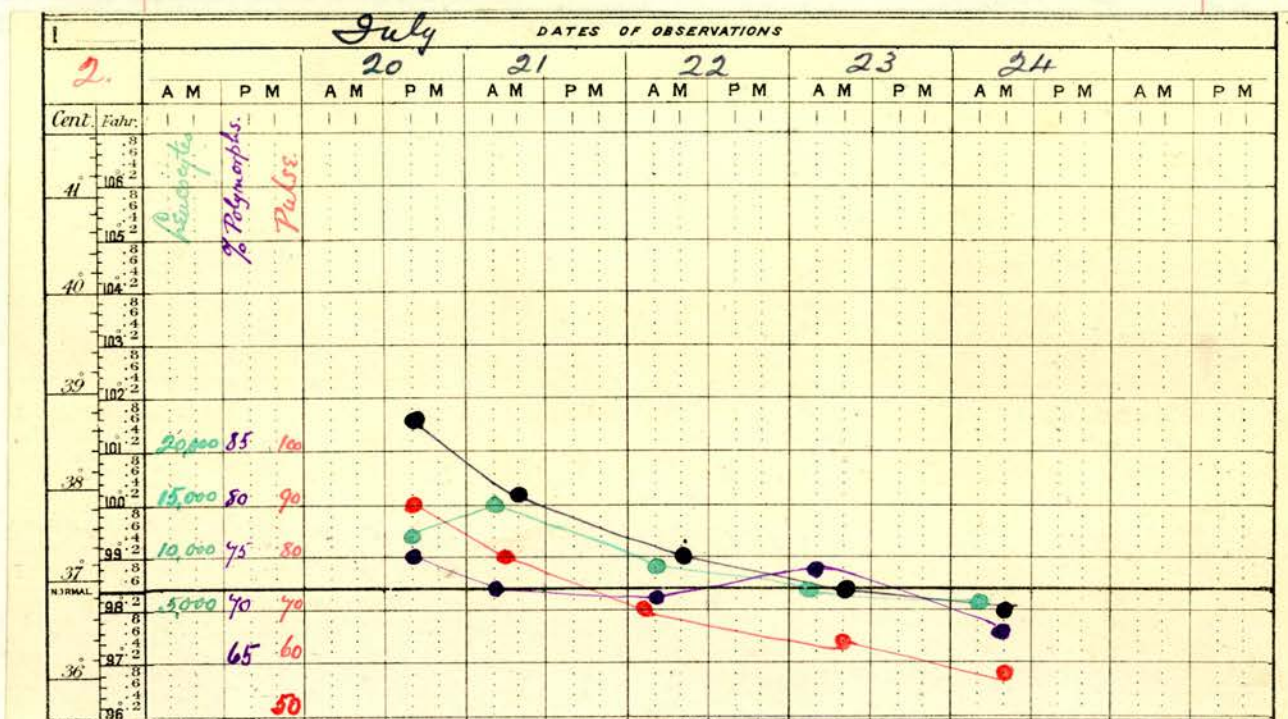 1 July DATES OF OBSERVATIONS
2. 20 21 22 23 24
A M P M A M P M A M P M A M P M A M P M A M P M A M P M
Cent. Fahr.
Leucocytes
% Polymorphs.
Pulse
41° 106°
105°
40° 104°
103°
39° 102°
20,000 85 100 101°
38°
15,000 80 90 100°
10,000 75 80 99°
37°
NORMAL
5,000 70 70 98°
65 60 97°
36°
50 96°